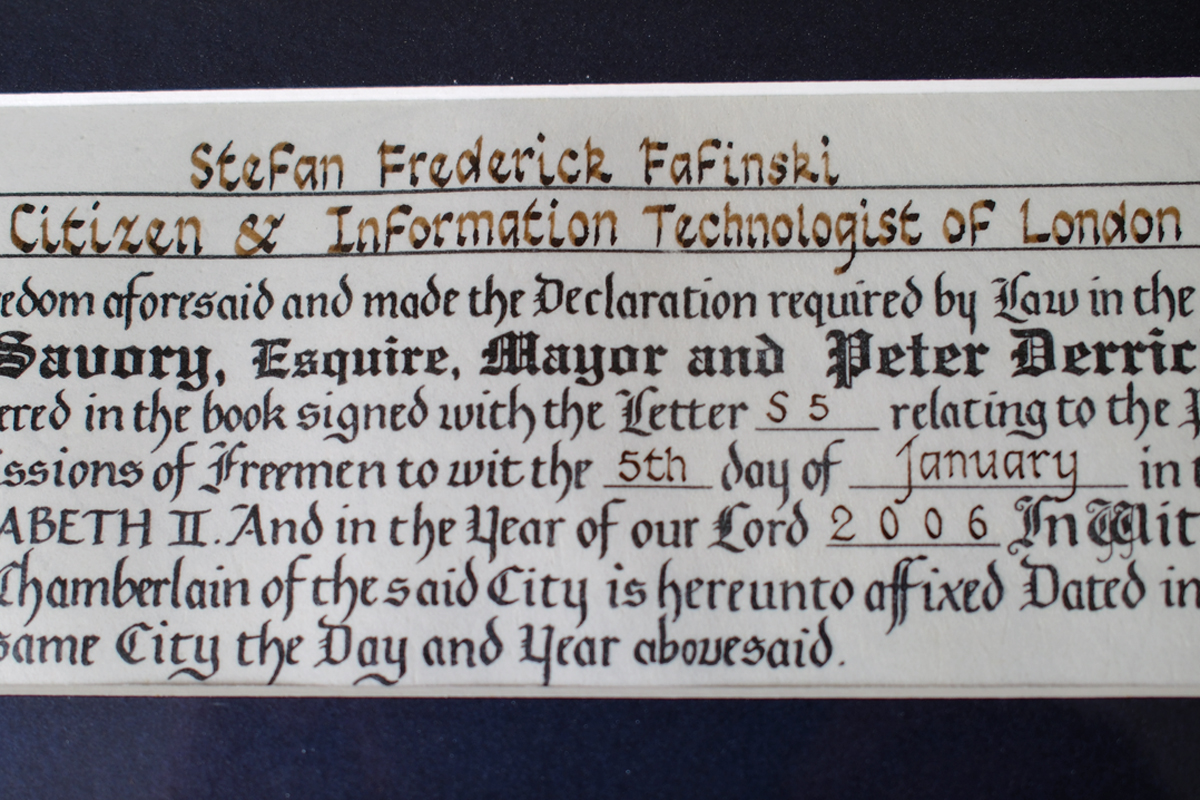 Stefan Frederick Fafinski
Citizen & Information Technologist of London
edom aforesaid and made the Declaration required by Law in the
Savory, Esquire, Mayor and Peter Derric
ered in the book signed with the Letter S 5 relating to the P
issions of Freemen to wit the 5th day of January in t
ABETH II. And in the Year of our Lord 2 0 0 6 In Wit
Chamberlain of the said City is hereunto affixed Dated in
same City the Day and Year abovesaid.